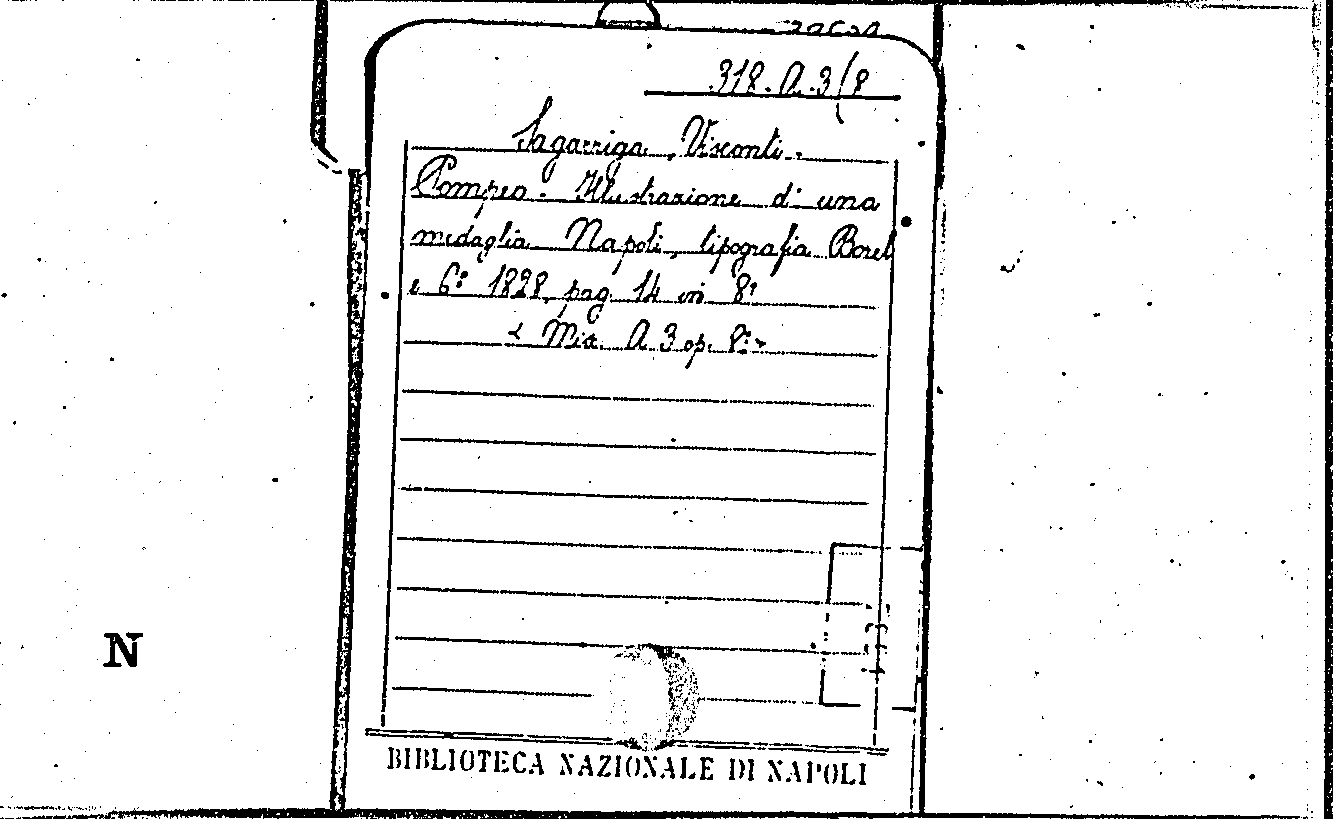 318. A. 3(8
Sagarriga, Visconti.
Pompeo. Illustrazione di una
medaglia Napoli, tipografia Borel
e C.º 1828, pag. 14 in 8º
N
BIBLIOTECA NAZIONALE DI NAPOLI